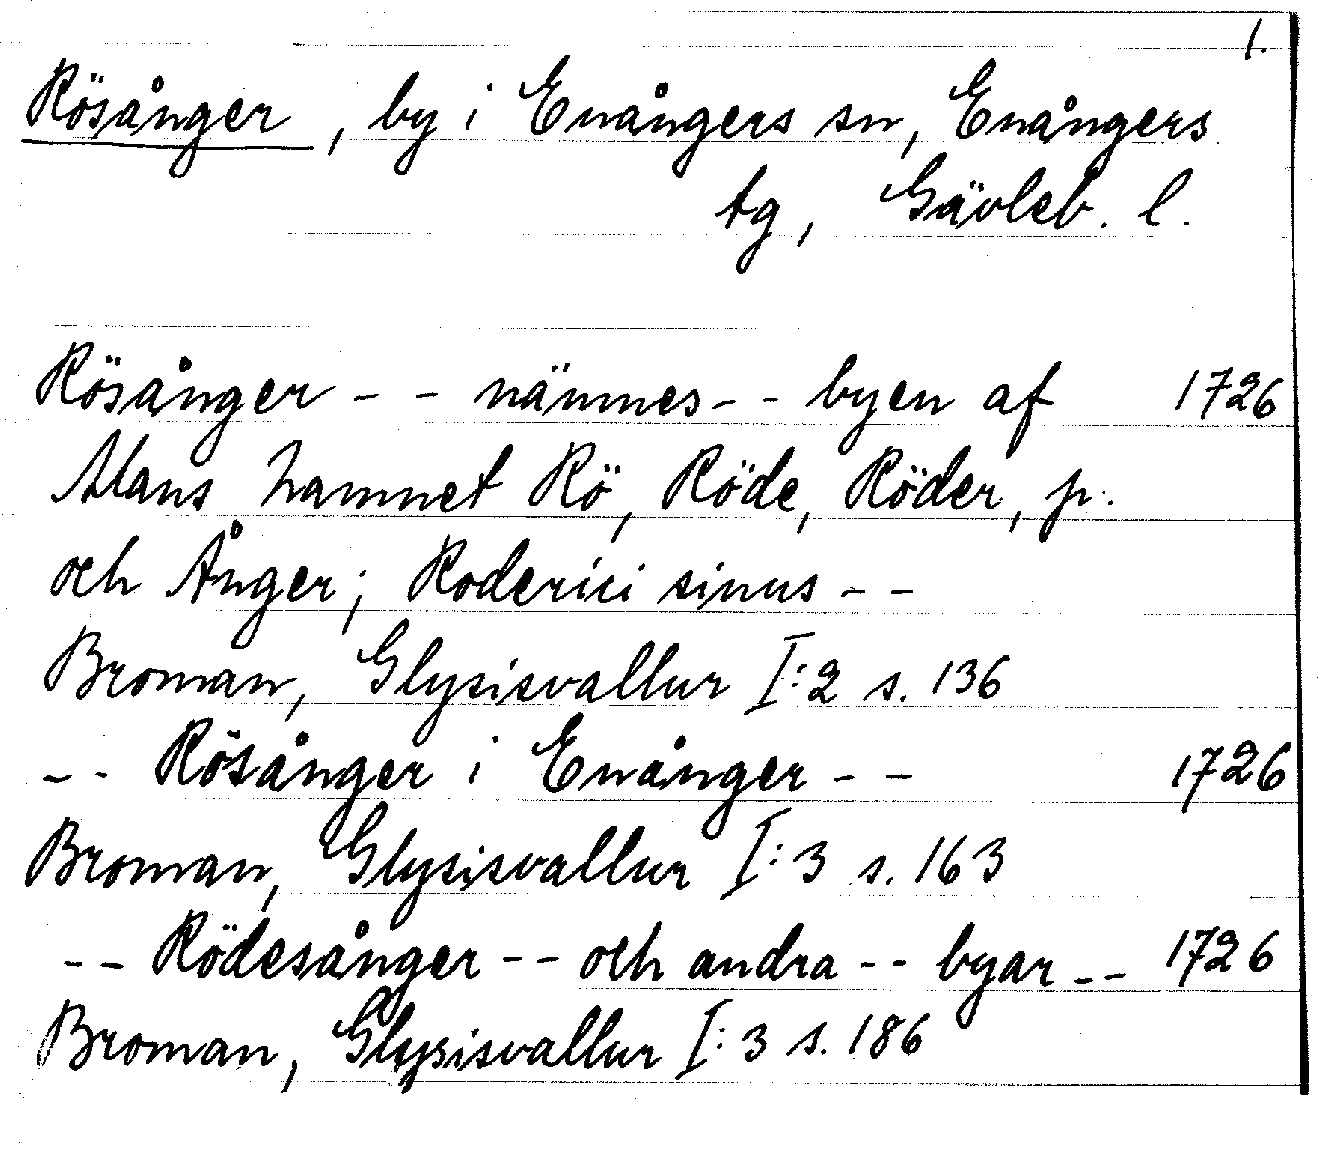 1.
Rösånger, by i Enångers sn, Enångers
tg, Gävleb. l.
Rösånger - - nämnes - - byen af 1726
Mans namnet Rö, Röde, Röder, p.
och Ånger; Roderici sinus - -
Broman, Glysisvallur I:2 s. 136
- - Rösånger i Enånger - - 1726
Broman, Glysisvallur I:3 s. 163
- - Rödesånger - - och andra - - byar - - 1726
Broman, Glysisvallur I:3 s. 186